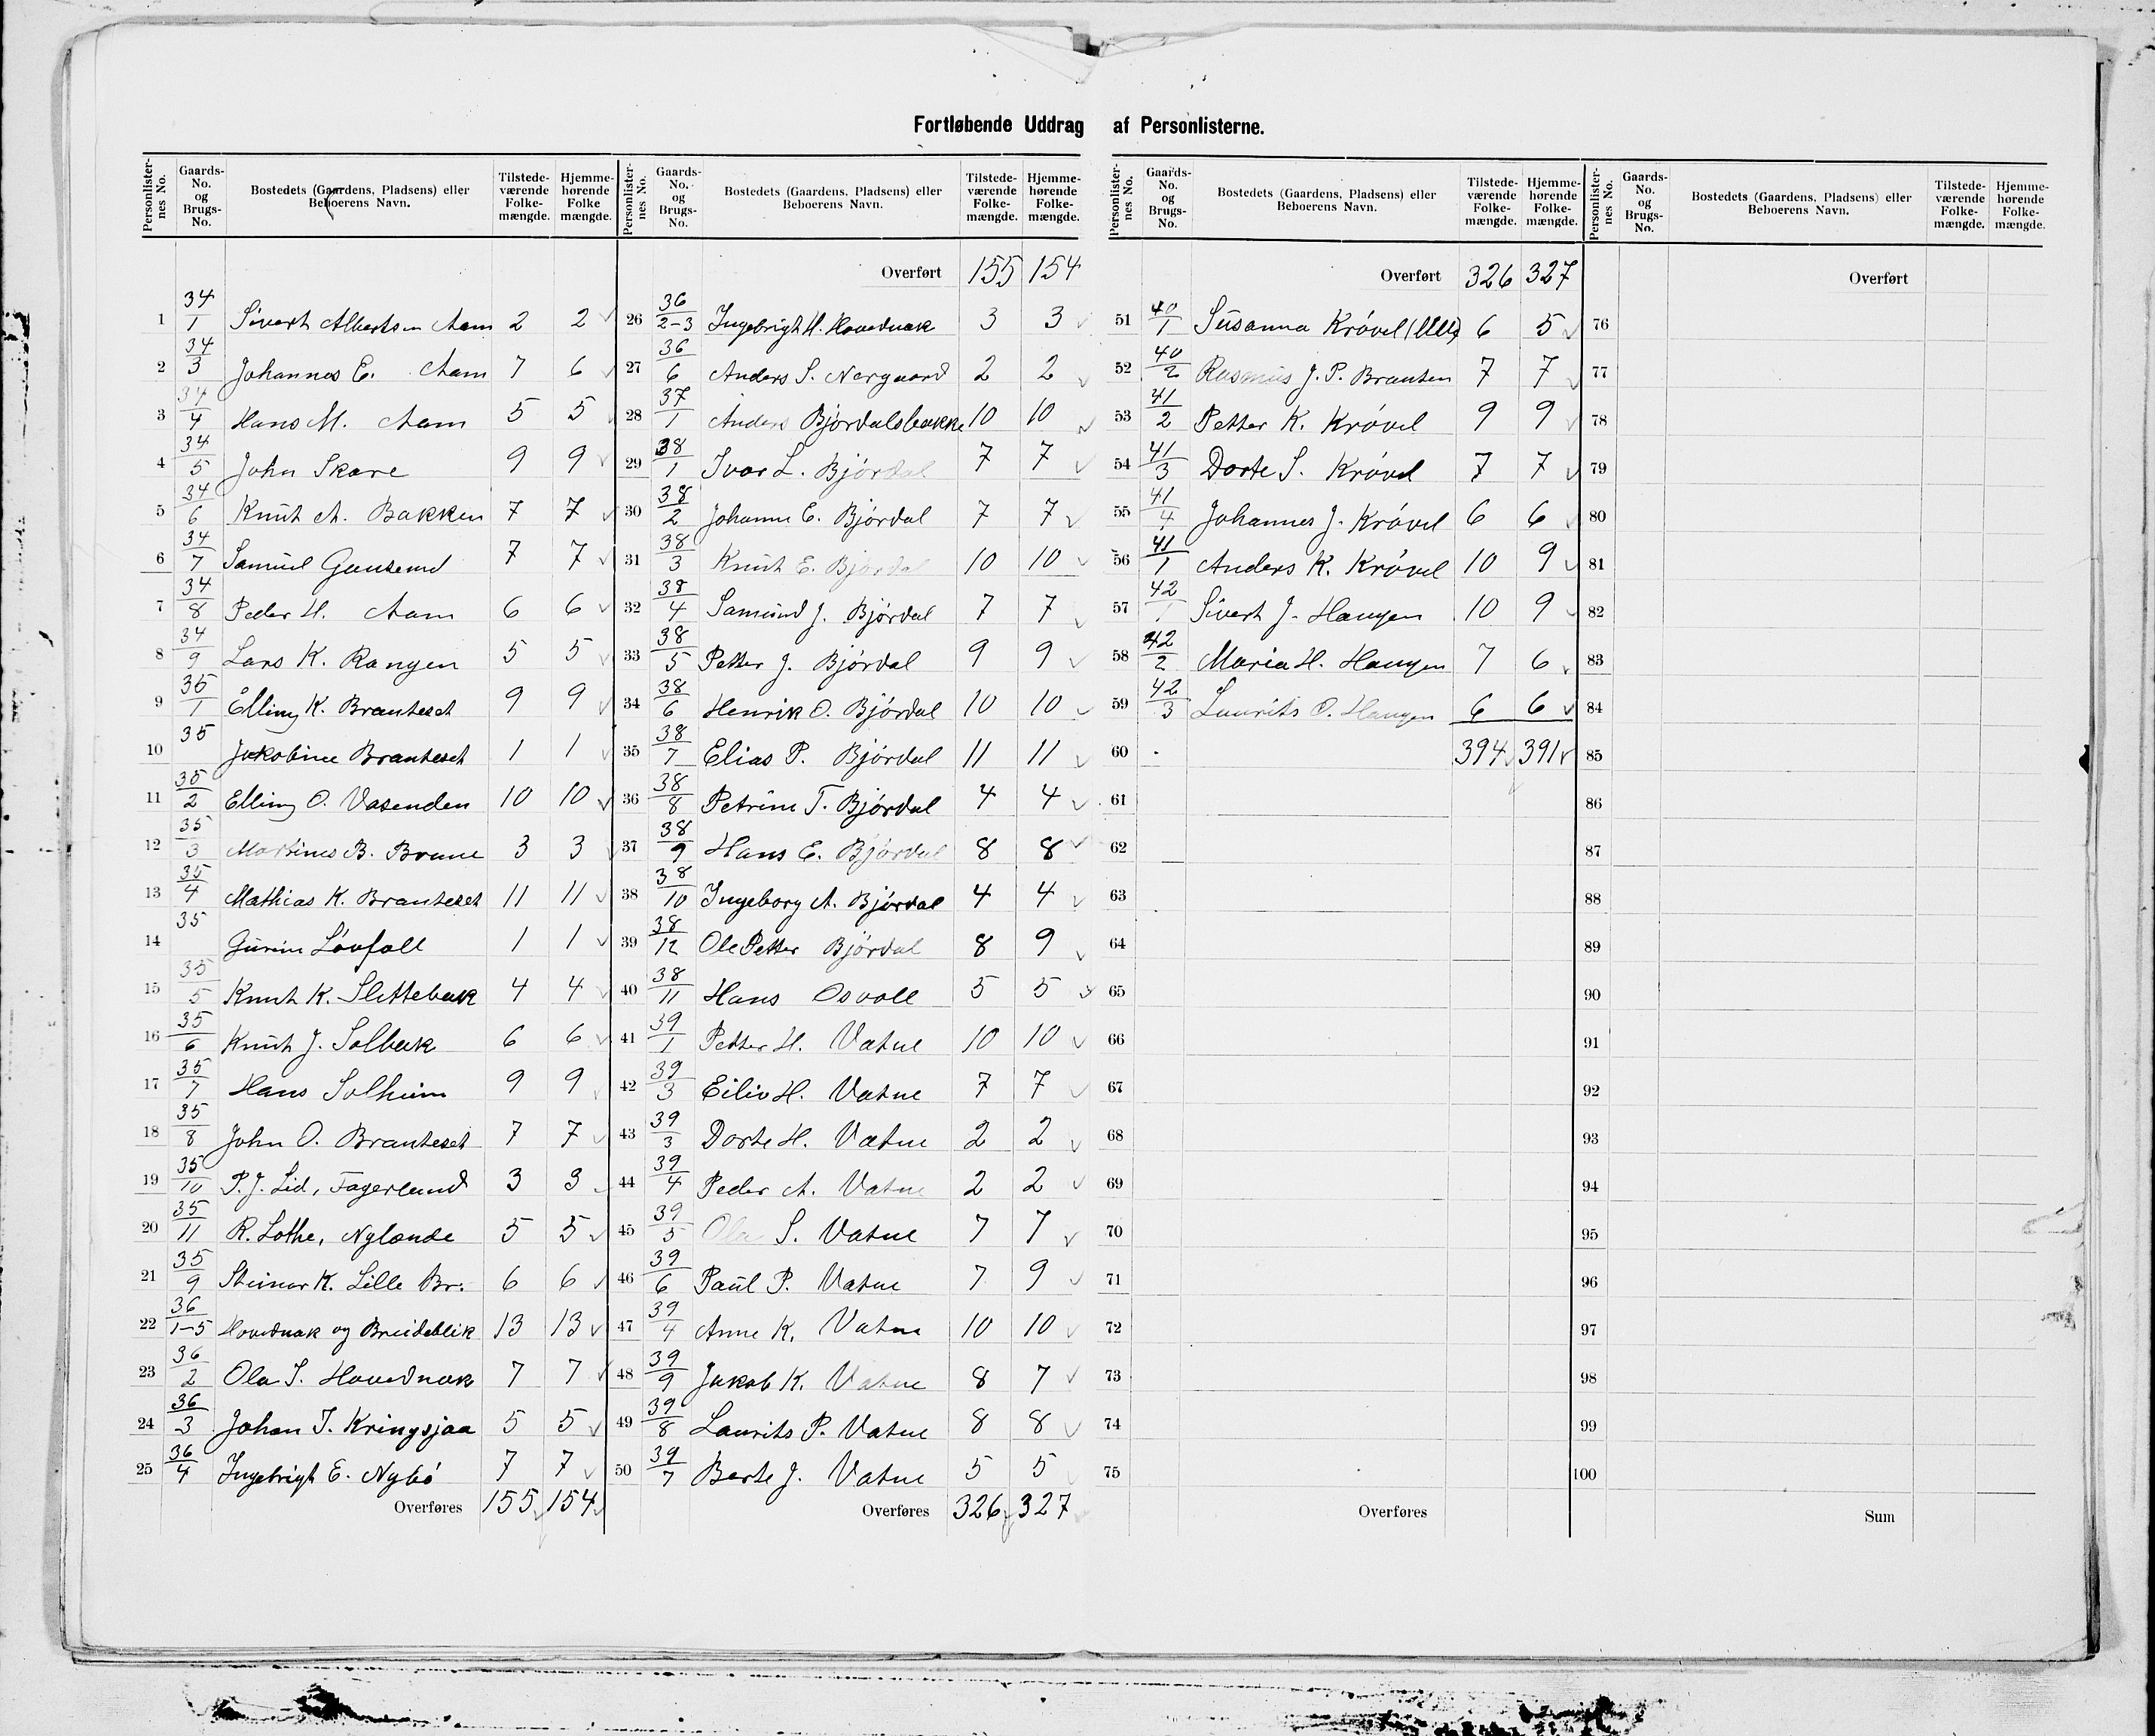 Fortløbende Uddrag af Personlisterne.
Personlisternes No. Gaards-No. og Brugs-No. Bostedets (Gaardens, Pladsens) eller Beboerens Navn. Tilstedeværende Folkemængde. Hjemmehørende Folkemængde.
1 34/1 Sivert Albertsen Aam 2 2
2 34/3 Johannes E. Aam 7 6
3 34/4 Hans M. Aam 5 5
4 34/5 John Skare 9 9
5 34/6 Knut A. Bakken 7 7
6 34/7 Samuel 7 7
7 34/8 Peder H. Aam 6 6
8 34/9 Lars K. Rangen 5 5
9 35/1 Elling K. Branteset 9 9
10 35 Jakobine Branteset 1 1
11 35/2 Elling O. Vasenden 10 10
12 35/3 Martinus B. Brune 3 3
13 35/4 Mathias K. Branteset 11 11
14 35 Gurine Løvfall 1 1
15 35/5 Knut K. Slettebak 4 4
16 35/6 Knut J. Solbak 6 6
17 35/7 Hans Solheim 9 9
18 35/8 John O. Branteset 7 7
19 35/10 P. J. Lid, Fagerlund 3 3
20 35/11 R. Lothe, Nylende 5 5
21 35/9 Steinar K. Lille Br. 6 6
22 36/1-5 Hovednak og Breideblik 13 13
23 36/2 Ola I. Hovednak 7 7
24 36/3 Johan I. Kringsjaa 5 5
25 36/4 Ingebrigt E. Nybø 7 7
Overføres 155 154
Overført 155 154
26 36/2-3 Ingebrigt H. Hovednak 3 3
27 36/6 Anders S. Nergaard 2 2
28 37/1 Anders Bjørdalsbakke 10 10
29 38/1 Ivar L. Bjørdal 7 7
30 38/2 Johanne E. Bjørdal 7 7
31 38/3 Knut E. Bjørdal 10 10
32 38/4 Samund J. Bjørdal 7 7
33 38/5 Petter J. Bjørdal 9 9
34 38/6 Henrik O. Bjørdal 10 10
35 38/7 Elias P. Bjørdal 11 11
36 38/8 Petrine T. Bjørdal 4 4
37 38/9 Hans E. Bjørdal 8 8
38 38/10 Ingeborg A. Bjørdal 4 4
39 38/12 Ole Petter Bjørdal 8 9
40 38/11 Hans Osvoll 5 5
41 39/1 Petter H. Vatne 10 10
42 39/3 Eiliv H. Vatne 7 7
43 39/3 Dorte H. Vatne 2 2
44 39/4 Peder A. Vatne 2 2
45 39/5 Ola S. Vatne 7 7
46 39/6 Paul P. Vatne 7 9
47 39/4 Anne K. Vatne 10 10
48 39/9 Jakob K. Vatne 8 7
49 39/8 Laurits P. Vatne 8 8
50 39/7 Berte J. Vatne 5 5
Overføres 326 327
Personlisternes No. Gaards-No. og Brugs-No. Bostedets (Gaardens, Pladsens) eller Beboerens Navn. Tilstedeværende Folkemængde. Hjemmehørende Folkemængde.
Overført 326 327
51 40/1 Susanna Krøvel 6 5
52 40/2 Rasmus J. P. Branten 7 7
53 41/2 Petter K. Krøvel 9 9
54 41/3 Dorte S. Krøvel 7 7
55 41/4 Johannes J. Krøvel 6 6
56 41/1 Anders K. Krøvel 10 9
57 42/1 Sivert J. Haugen 10 9
58 42/2 Maria H. Haugen 7 6
59 42/3 Laurits O. Haugen 6 6
60 394 391
61
62
63
64
65
66
67
68
69
70
71
72
73
74
75
Overføres
Overført
76
77
78
79
80
81
82
83
84
85
86
87
88
89
90
91
92
93
94
95
96
97
98
99
100
Sum